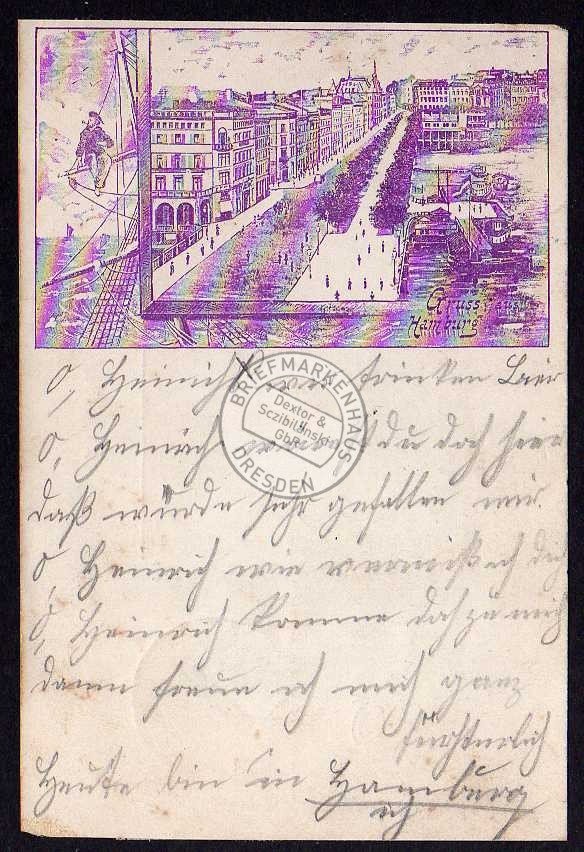 Gruss aus
Hamburg
O, Heinrich wir trinken Bier
O, Heinrich wärst du doch hier
daß würde sehr gefallen mir.
O, Heinrich wie vermiß ich dich
O, Heinrich komme doch zu mich
dann freue ich mich ganz
fürchterlich
Heute bin in Hamburg
ich
BRIEFMARKENHAUS
Dextor &
Sczibilanski
GbR
DRESDEN